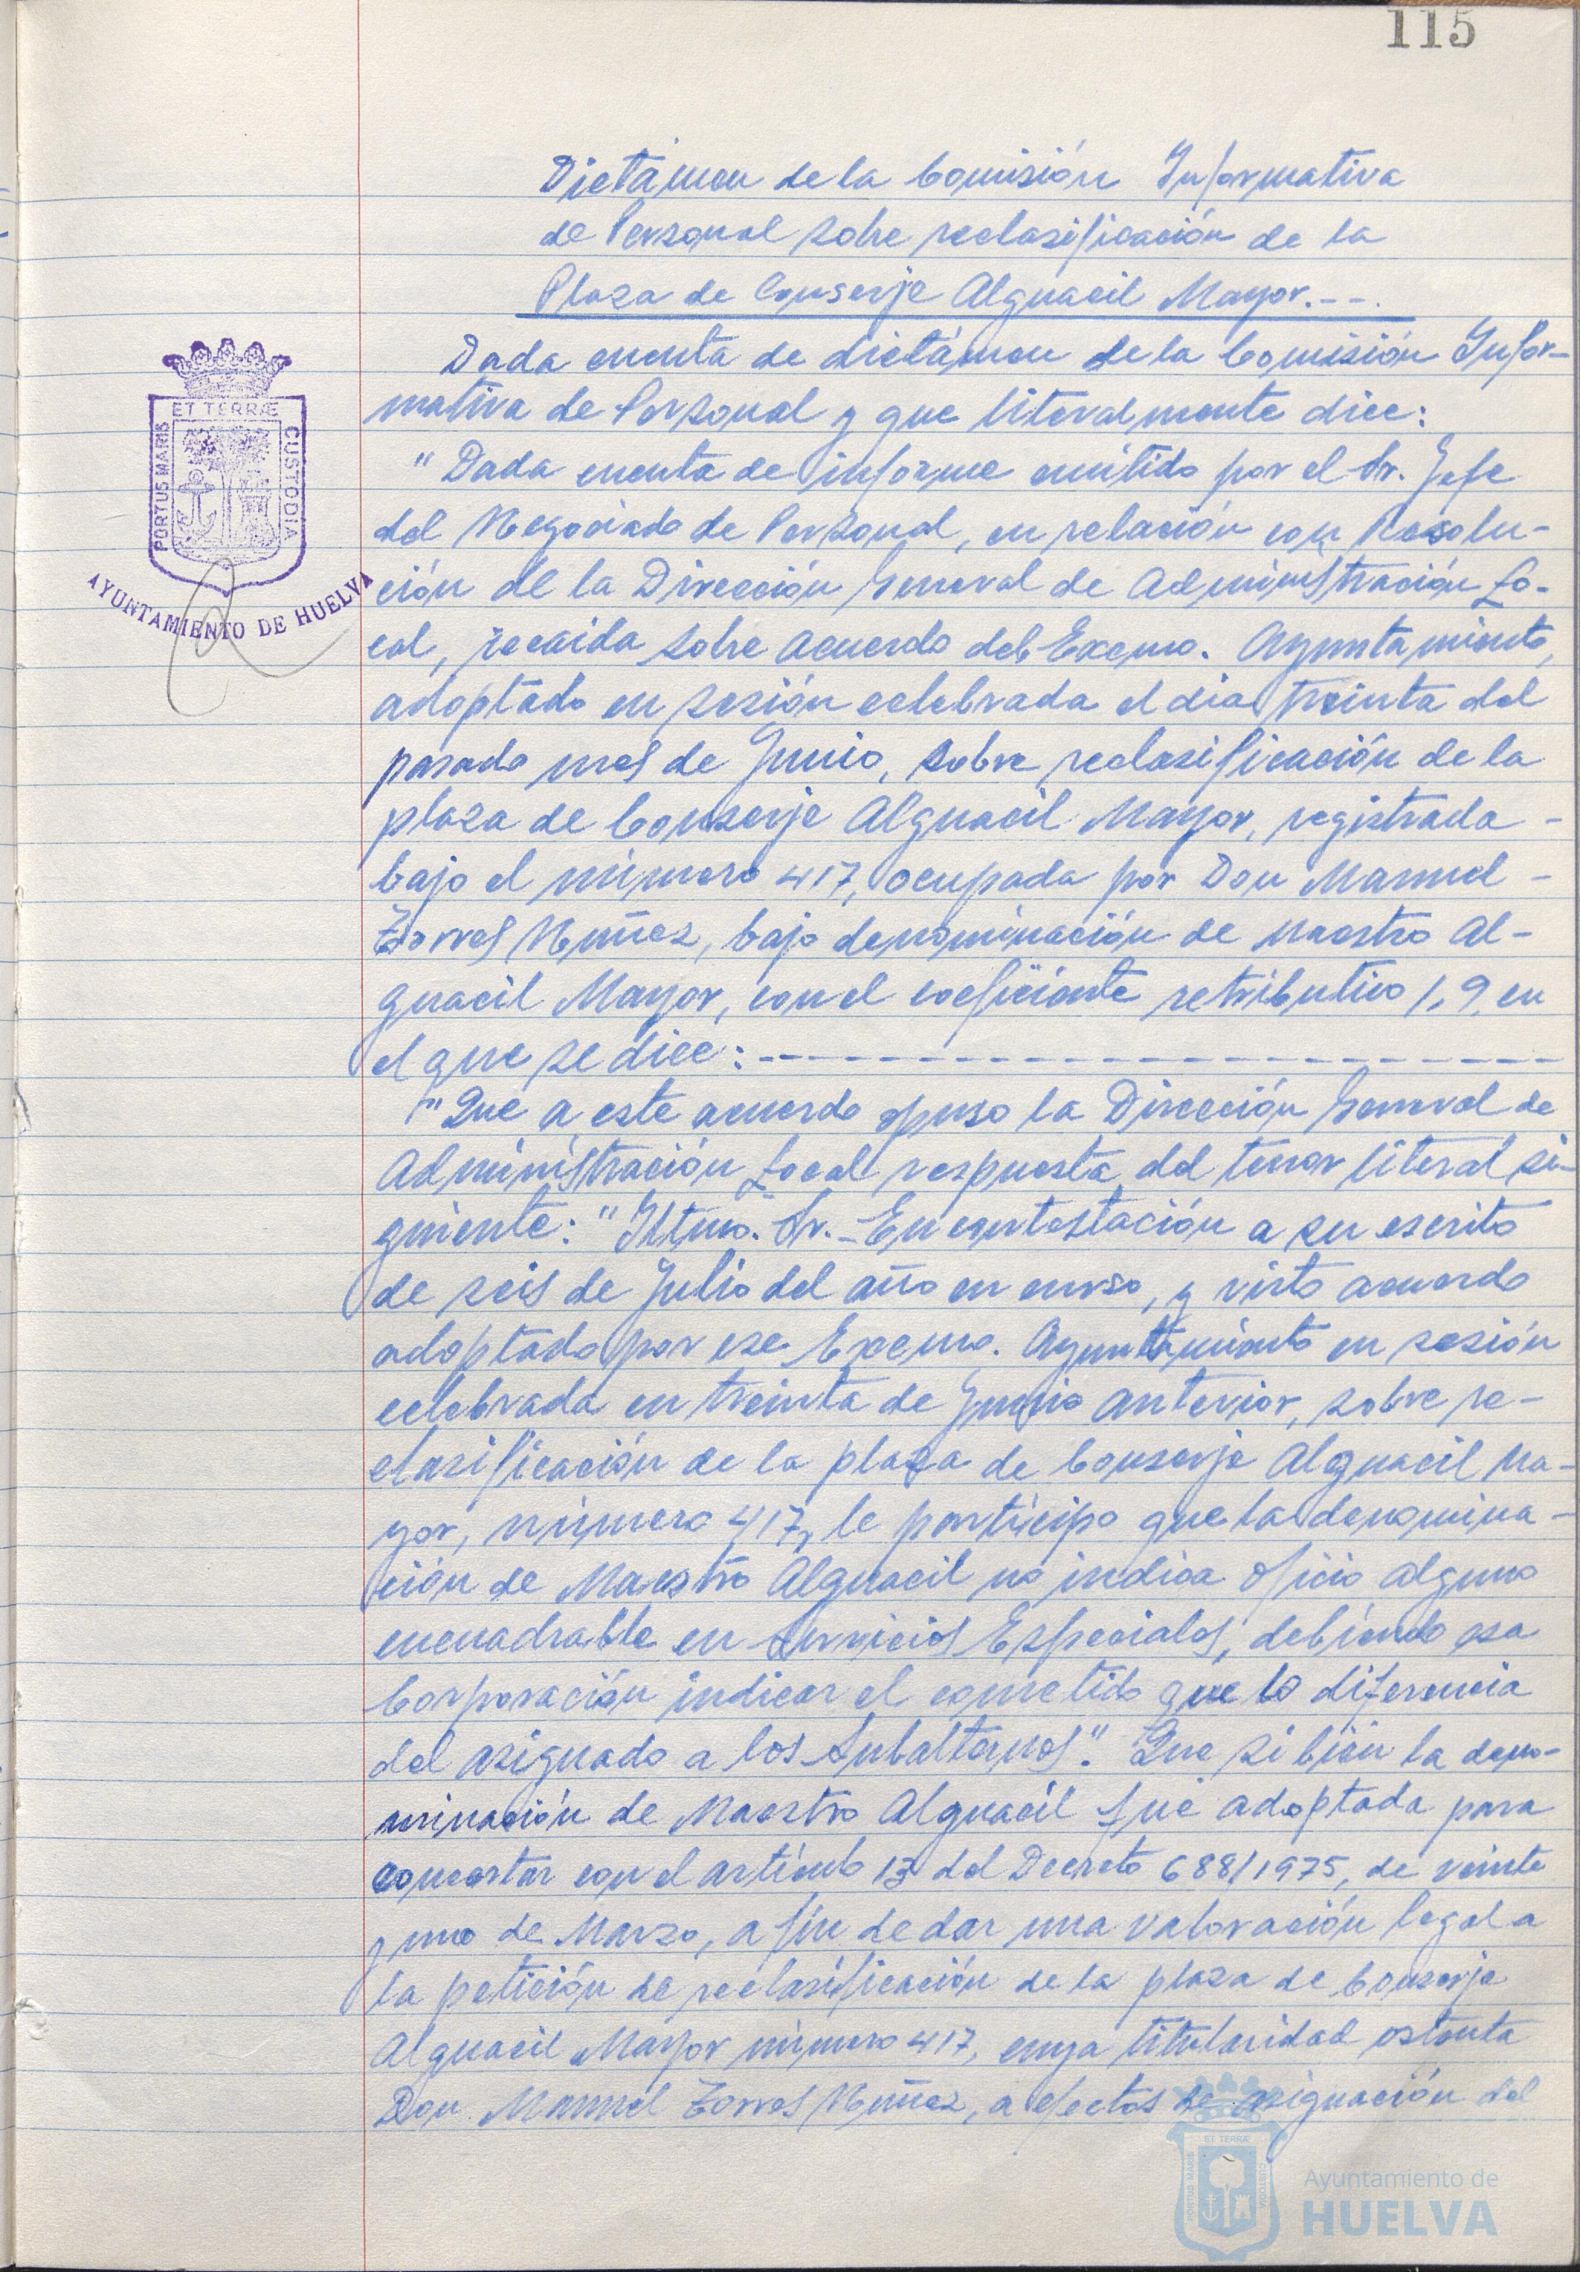 115
Dictámen de la Comisión Informativa
de Personal sobre reclasificación de la
Plaza de Conserje Alguacil Mayor.---.
Dada cuenta de dictámen de la Comisión Infor-
mativa de Personal y que literalmente dice:
"Dada cuenta de informe emitido por el Sr. Jefe
del Negociado de Personal, en relación con Resolu-
ción de la Dirección General de Administración Lo-
cal, recaida sobre acuerdo del Excmo. Ayuntamiento,
adoptado en sesión celebrada el dia treinta del
pasado mes de Junio, sobre reclasificación de la
plaza de Conserje Alguacil Mayor, registrada -
bajo el número 417, ocupada por Don Manuel -
Torres Nuñez, bajo denominación de Maestro Al-
guacil Mayor, con el coeficiente retributivo 1,9, en
el que se dice: ---------------------------
"Que a este acuerdo opuso la Dirección General de
Administración Local respuesta del tenor literal si-
guiente: "Iltmo. Sr.- En contestación a su escrito
de seis de Julio del año en curso, y visto acuerdo
adoptado por ese Excmo. Ayuntamiento en sesión
celebrada en treinta de Junio anterior, sobre re-
clasificación de la plaza de Conserje Alguacil Ma-
yor, número 417, le participo que la denomina-
ción de Maestro Alguacil no indica oficio alguno
encuadrable en Servicios Especiales, debiendo esa
Corporación indicar el cometido que lo diferencia
del asignado a los Subalternos". Que si bien la deno-
minación de Maestro Alguacil fué adoptada para
concertar con el artículo 13 del Decreto 688/1975, de veinte
y uno de Marzo, a fin de dar una valoración legal a
la petición de reclasificación de la plaza de Conserje
Alguacil Mayor número 417, cuya titularidad ostenta
Don Manuel Torres Nuñez, a efectos de asignación del
PORTUS MARIS
ET TERRÆ
CUSTODIA
AYUNTAMIENTO DE HUELVA
PORTUS MARIS
ET TERRÆ
CUSTODIA
Ayuntamiento de
HUELVA